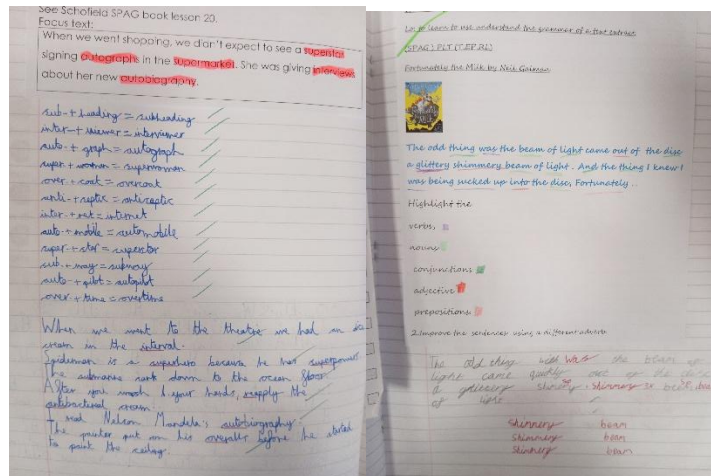 See Schofield SPAG book lesson 20.
Focus text:
When we went shopping, we didn't expect to see a superstar
signing autographs in the supermarket. She was giving interviews
about her new autobiography.
sub- + heading = subheading
inter- + viewer = interviewer
auto- + graph = autograph
super + woman = superwoman
over + coat = overcoat
anti- + septic = antiseptic
inter- + net = internet
auto- + mobile = automobile
super- + star = superstar
sub- + way = subway
auto- + pilot = autopilot
over + time = overtime
When we went to the theatre we had an ice
cream in the interval.
Spiderman is a superhero because he has superpowers.
The submarine sank down to the ocean floor.
After you wash your hands, the
antibacterial cream.
I read Nelson Mandela's autobiography.
The painter put on his overalls before he started
to paint the ceiling.
L.o to learn to use understand the grammar of a text extract.
(SPAG) PLT
Fortunately the Milk by Neil Gaiman
The odd thing was the beam of light came out of the disc
a glittery shimmery beam of light. And the thing I knew I
was being sucked up into the disc, Fortunately..
Highlight the
verbs,
nouns
conjunctions
adjective
prepositions
2.Improve the sentences using a different adverb.
The odd thing was the beam of
light came quickly out of the disc
a
of light
Shimmery beam
Shimmery beam
Shimmery beam